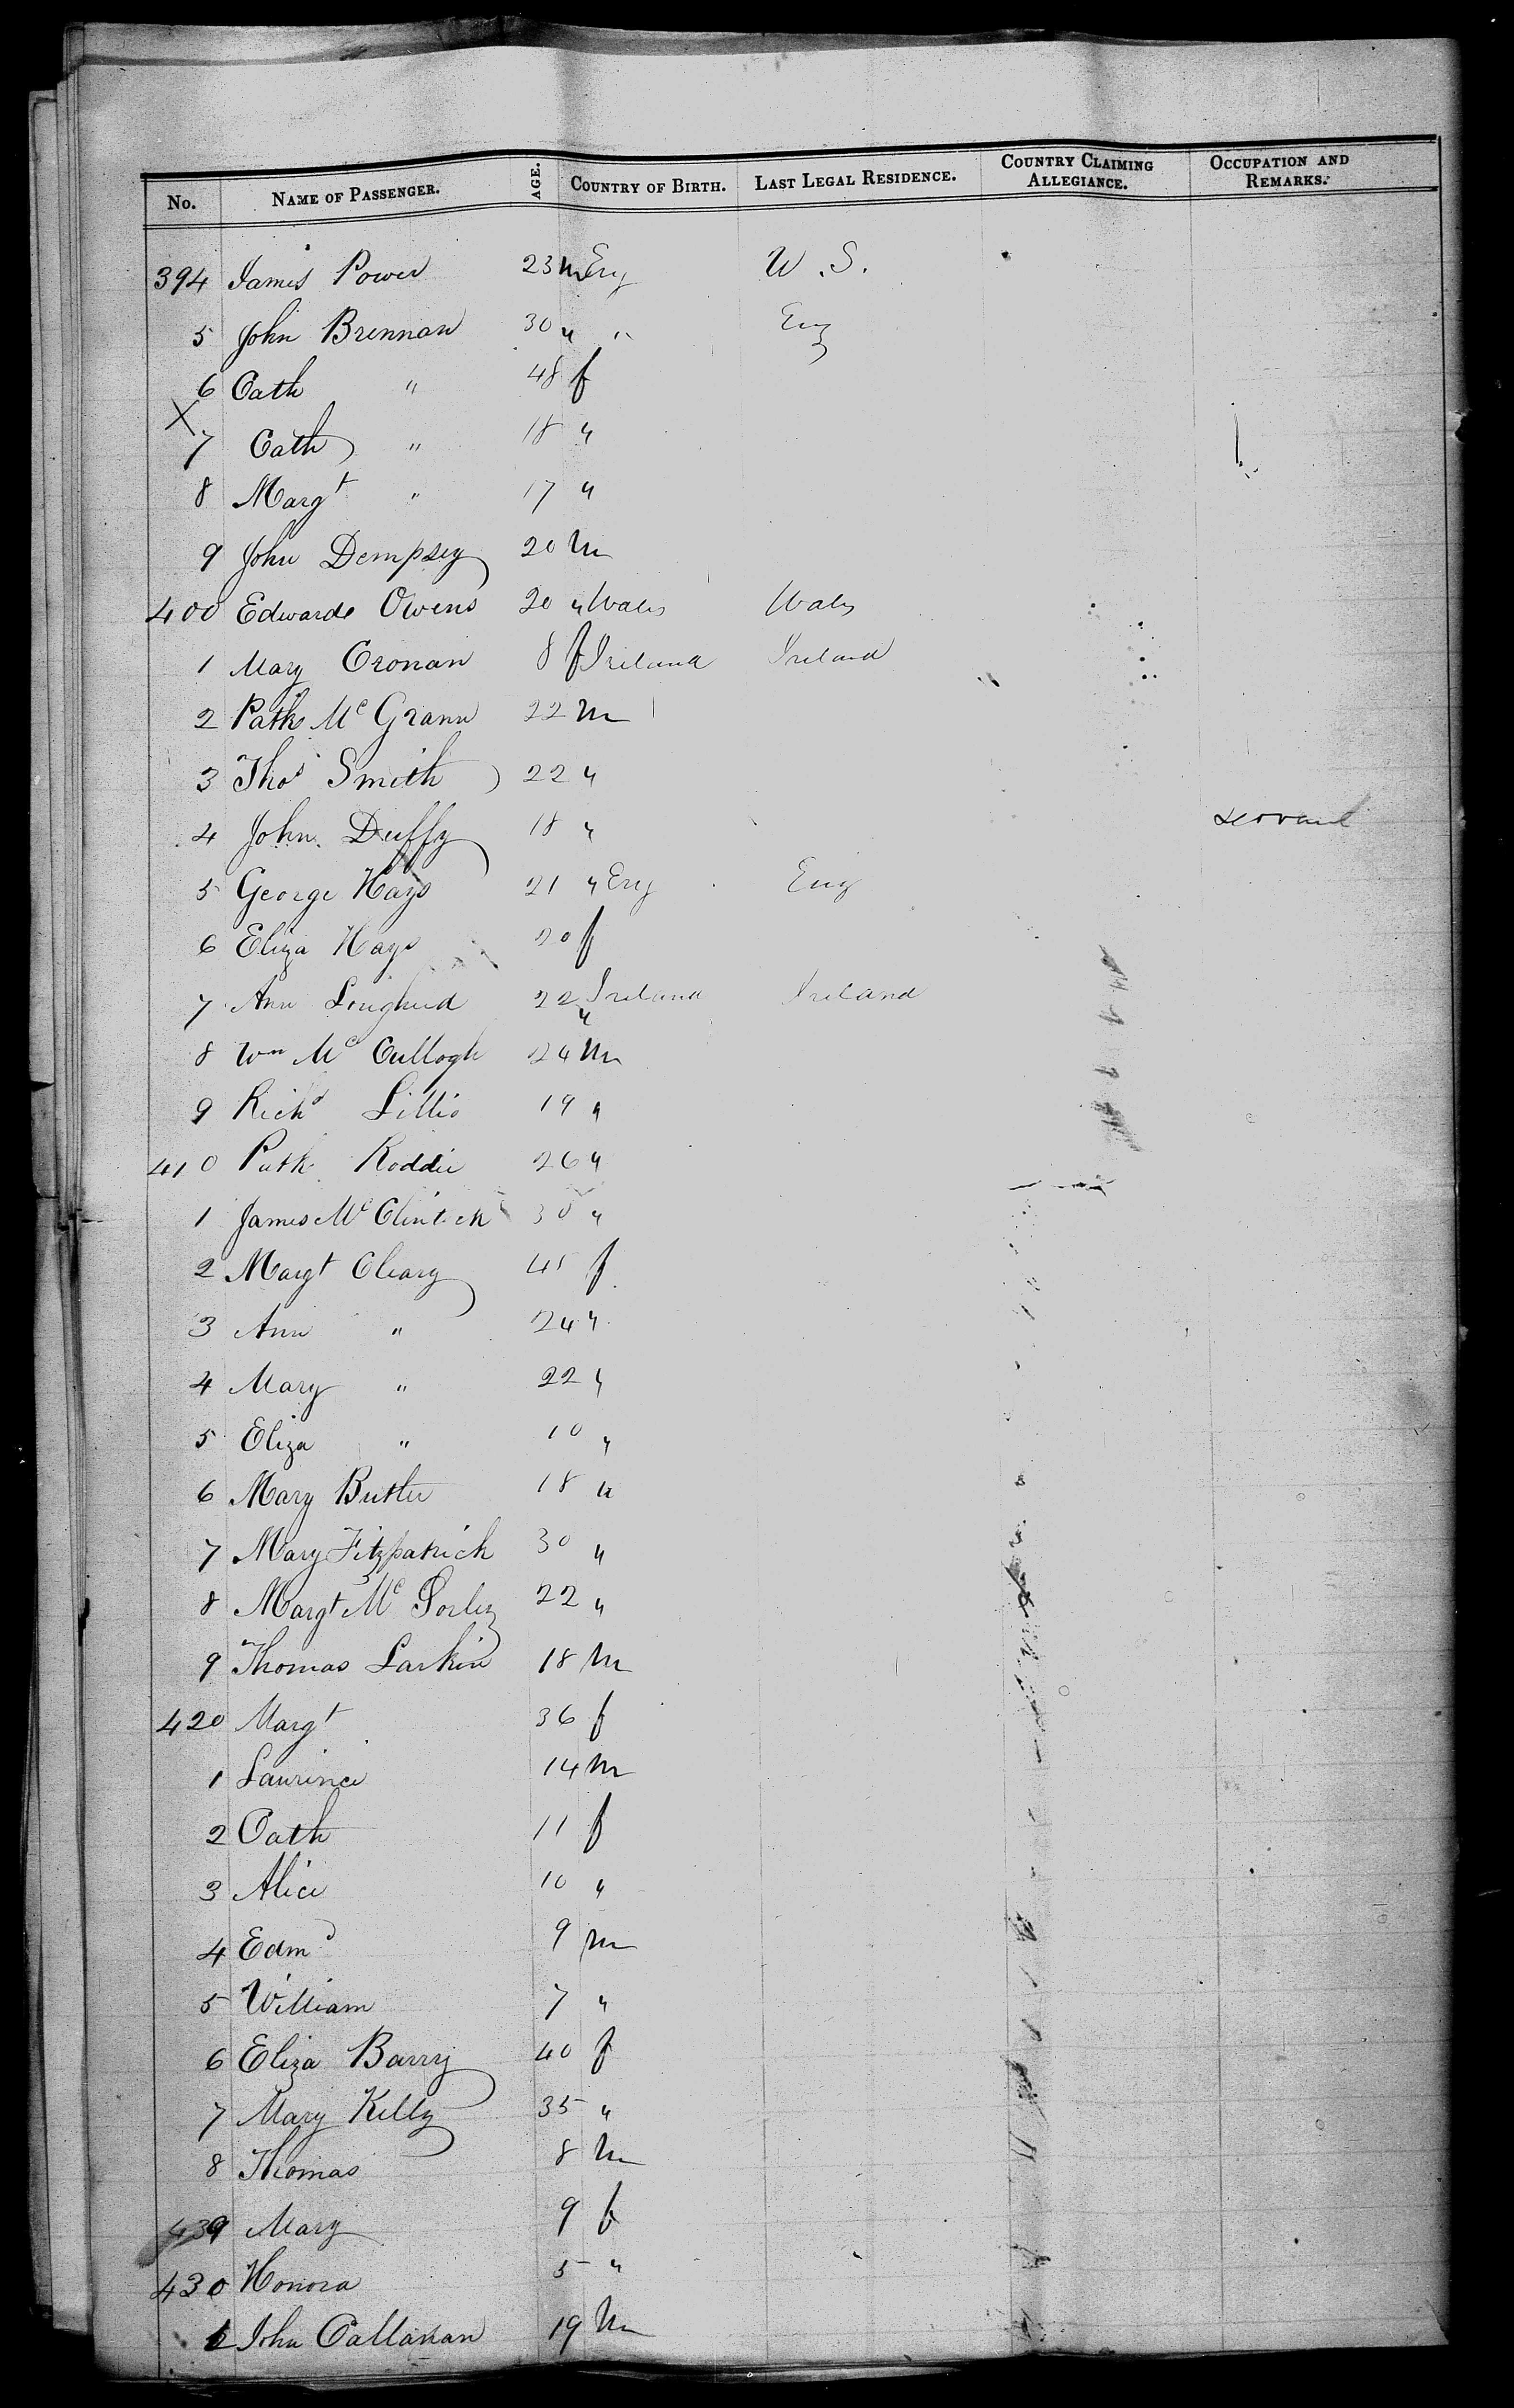 No. NAME OF PASSENGER. AGE. COUNTRY OF BIRTH. LAST LEGAL RESIDENCE. COUNTRY CLAIMING ALLEGIANCE. OCCUPATION AND REMARKS.
394 James Power 23 m Eng U.S.
5 John Brennan 30 " " Eng
6 Cath " 48 f
X
7 Cath " 18 "
8 Margt " 17 "
9 John Dempsey 20 m
400 Edward Owens 20 " Wales Wales
1 Mary Cronan 8 f Ireland Ireland
2 Patk McGrann 22 m
3 Thos Smith 22 "
4 John Duffy 18 " servant
5 George Hays 21 " Eng Eng
6 Eliza Hays 20 f
7 Ann 22 " Ireland Ireland
8 Wm McCullogh 24 m
9 Richd Lillis 19 "
410 Patk Roddie 26 "
1 James McClintck 30 "
2 Margt Cleary 45 f
3 Ann " 24 "
4 Mary " 22 "
5 Eliza " 10 "
6 Mary Butler 18 "
7 Mary Fitzpatrick 30 "
8 Margt McSorley 22 "
9 Thomas Larkin 18 m
420 Margt 36 f
1 Laurence 14 m
2 Cath 11 f
3 Alice 10 "
4 Edmd 9 m
5 William 7 "
6 Eliza Barry 40 f
7 Mary Kelly 35 "
8 Thomas 8 m
439 Mary 9 f
430 Honora 5 "
John Callanan 19 m